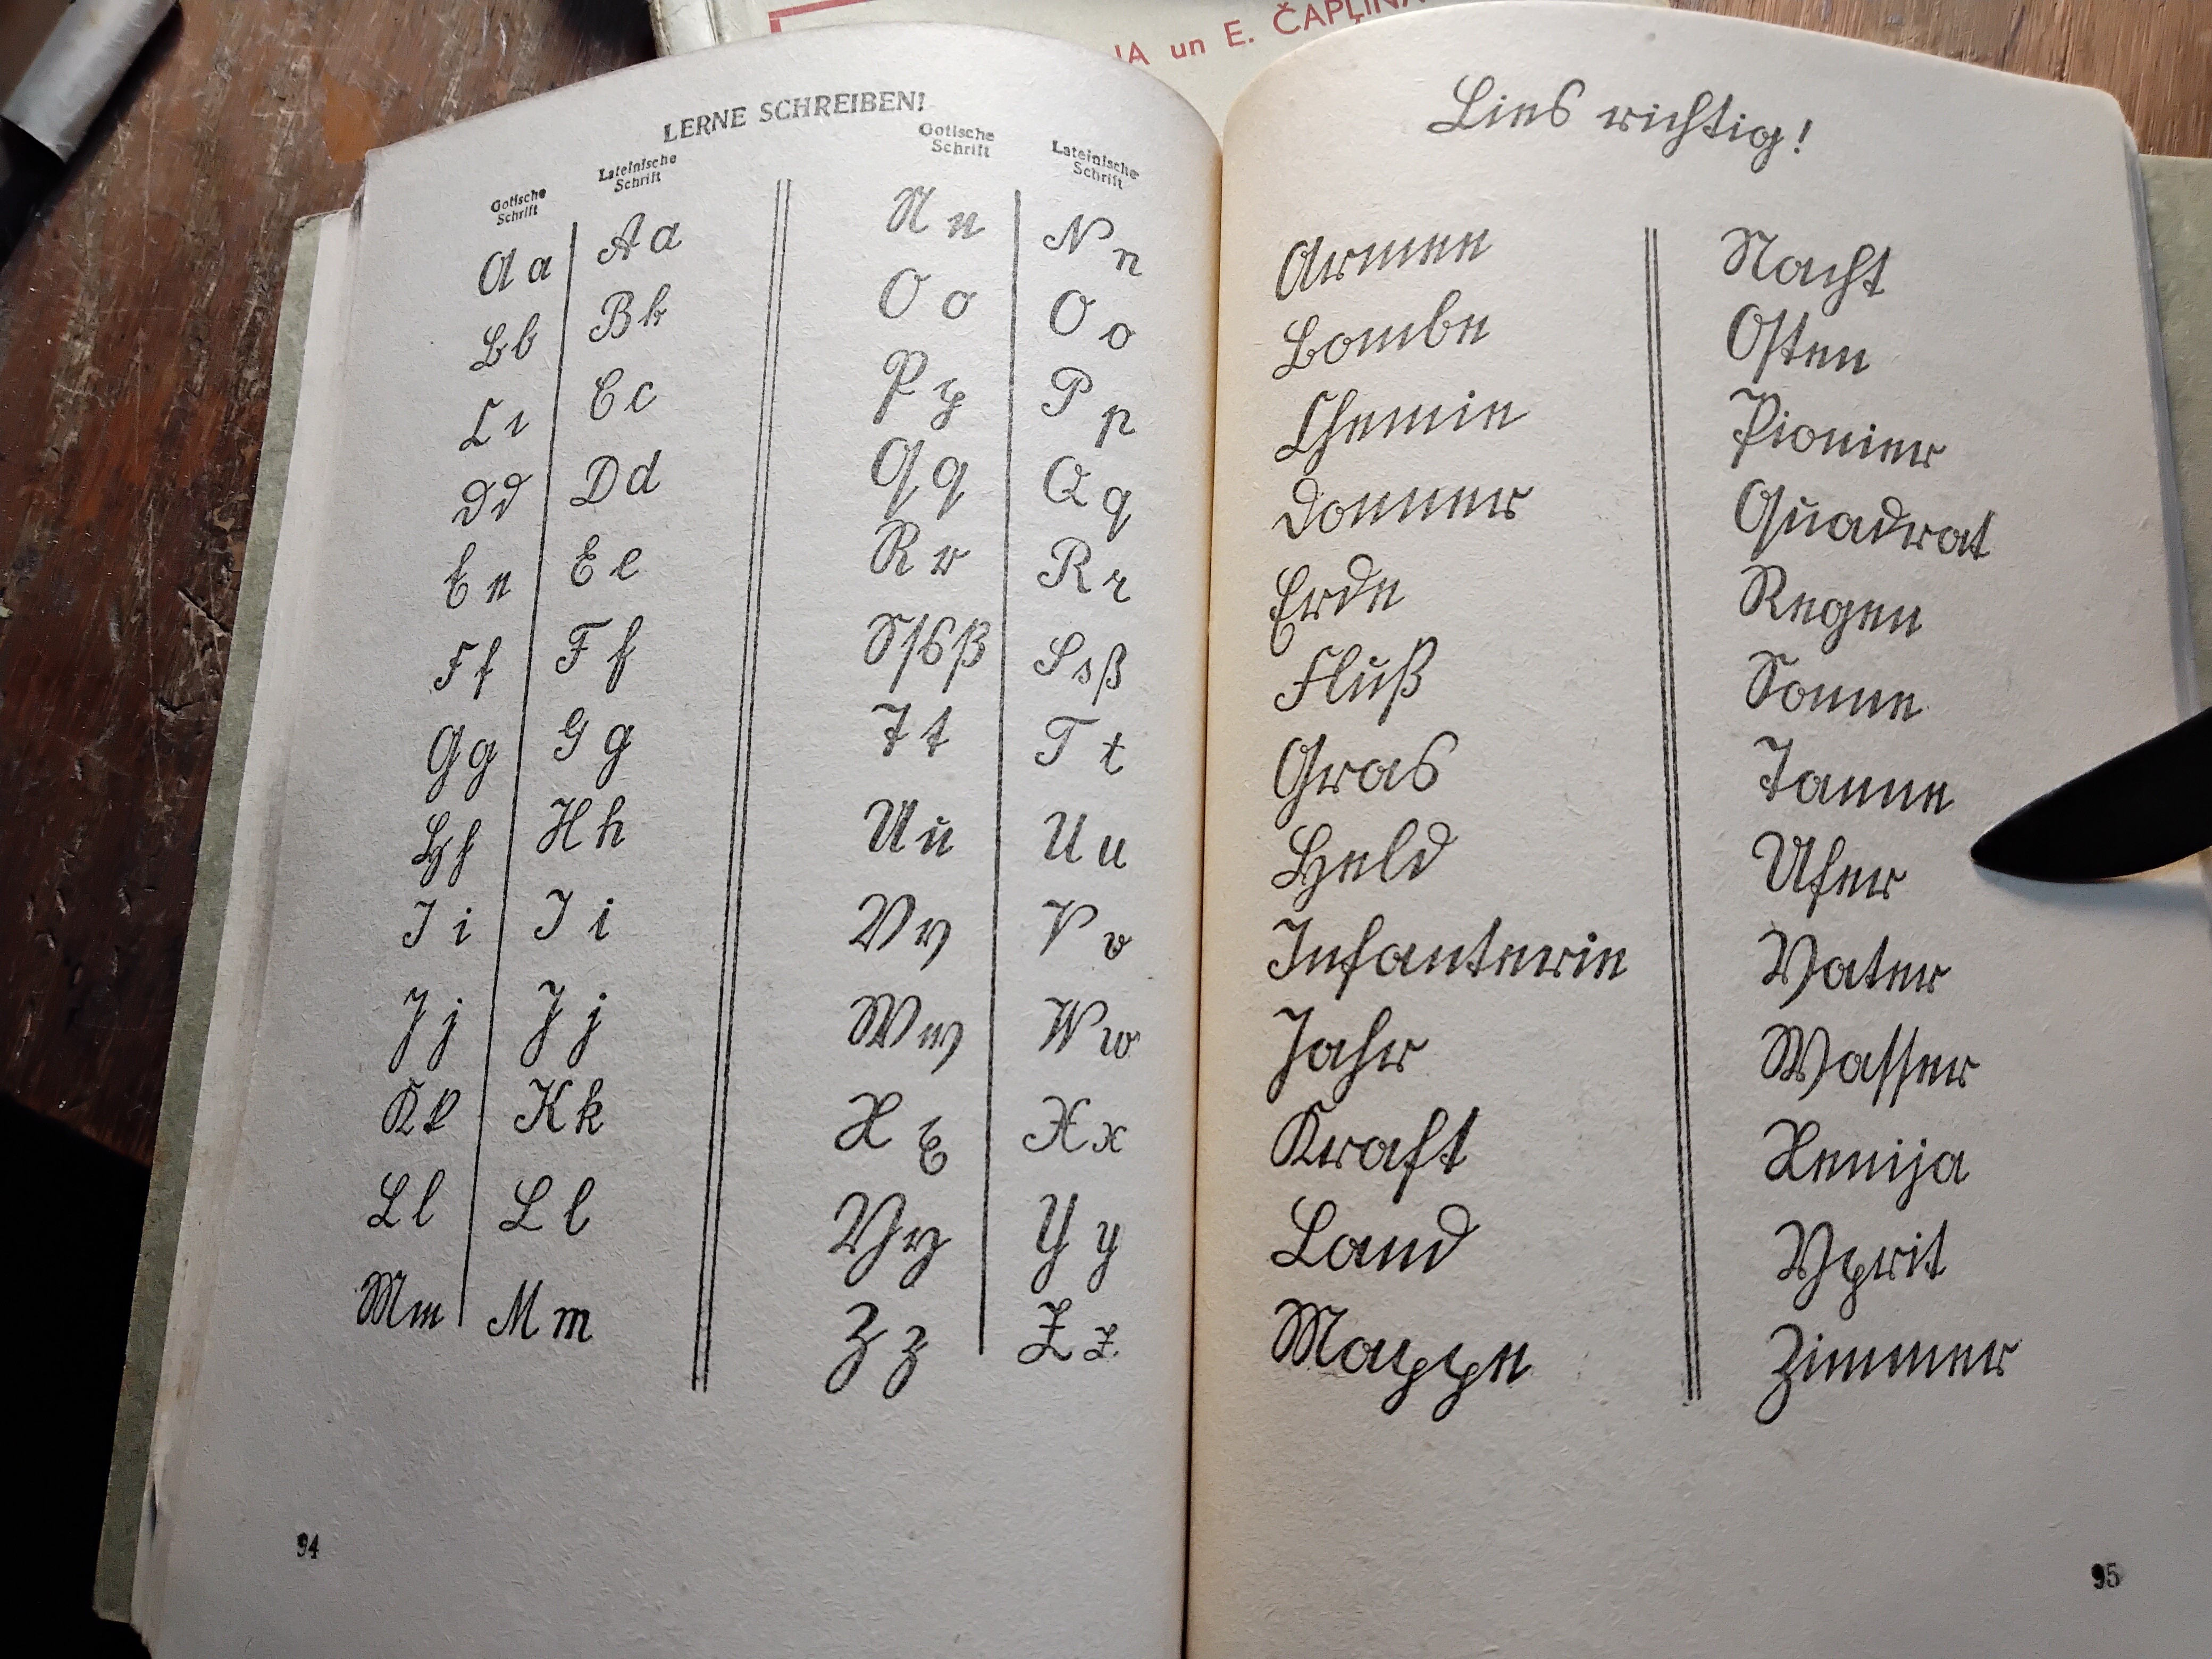 JA un E. ČAPĻINA
LERNE SCHREIBEN!
Gotische
Schrift
Lateinische
Schrift
A a
A a
B b
B b
C c
C c
D d
D d
E e
E e
F f
F f
G g
G g
H h
H h
I i
I i
J j
J j
K k
K k
L l
L l
M m
M m
Gotische
Schrift
Lateinische
Schrift
N n
N n
O o
O o
P p
P p
Q q
Q q
R r
R r
S ſ s ß
S s ß
T t
T t
U u
U u
V v
V v
W w
W w
X x
X x
Y y
Y y
Z z
Z z
94
Lies richtig!
Armee
Bombe
Chemie
Donner
Erde
Fluß
Gras
Held
Infanterie
Jahr
Kraft
Land
Mappe
Nacht
Oſten
Pionier
Quadrat
Regen
Sonne
Tanne
Ufer
Vater
Waſſer
Xenija
Yprit
Zimmer
95